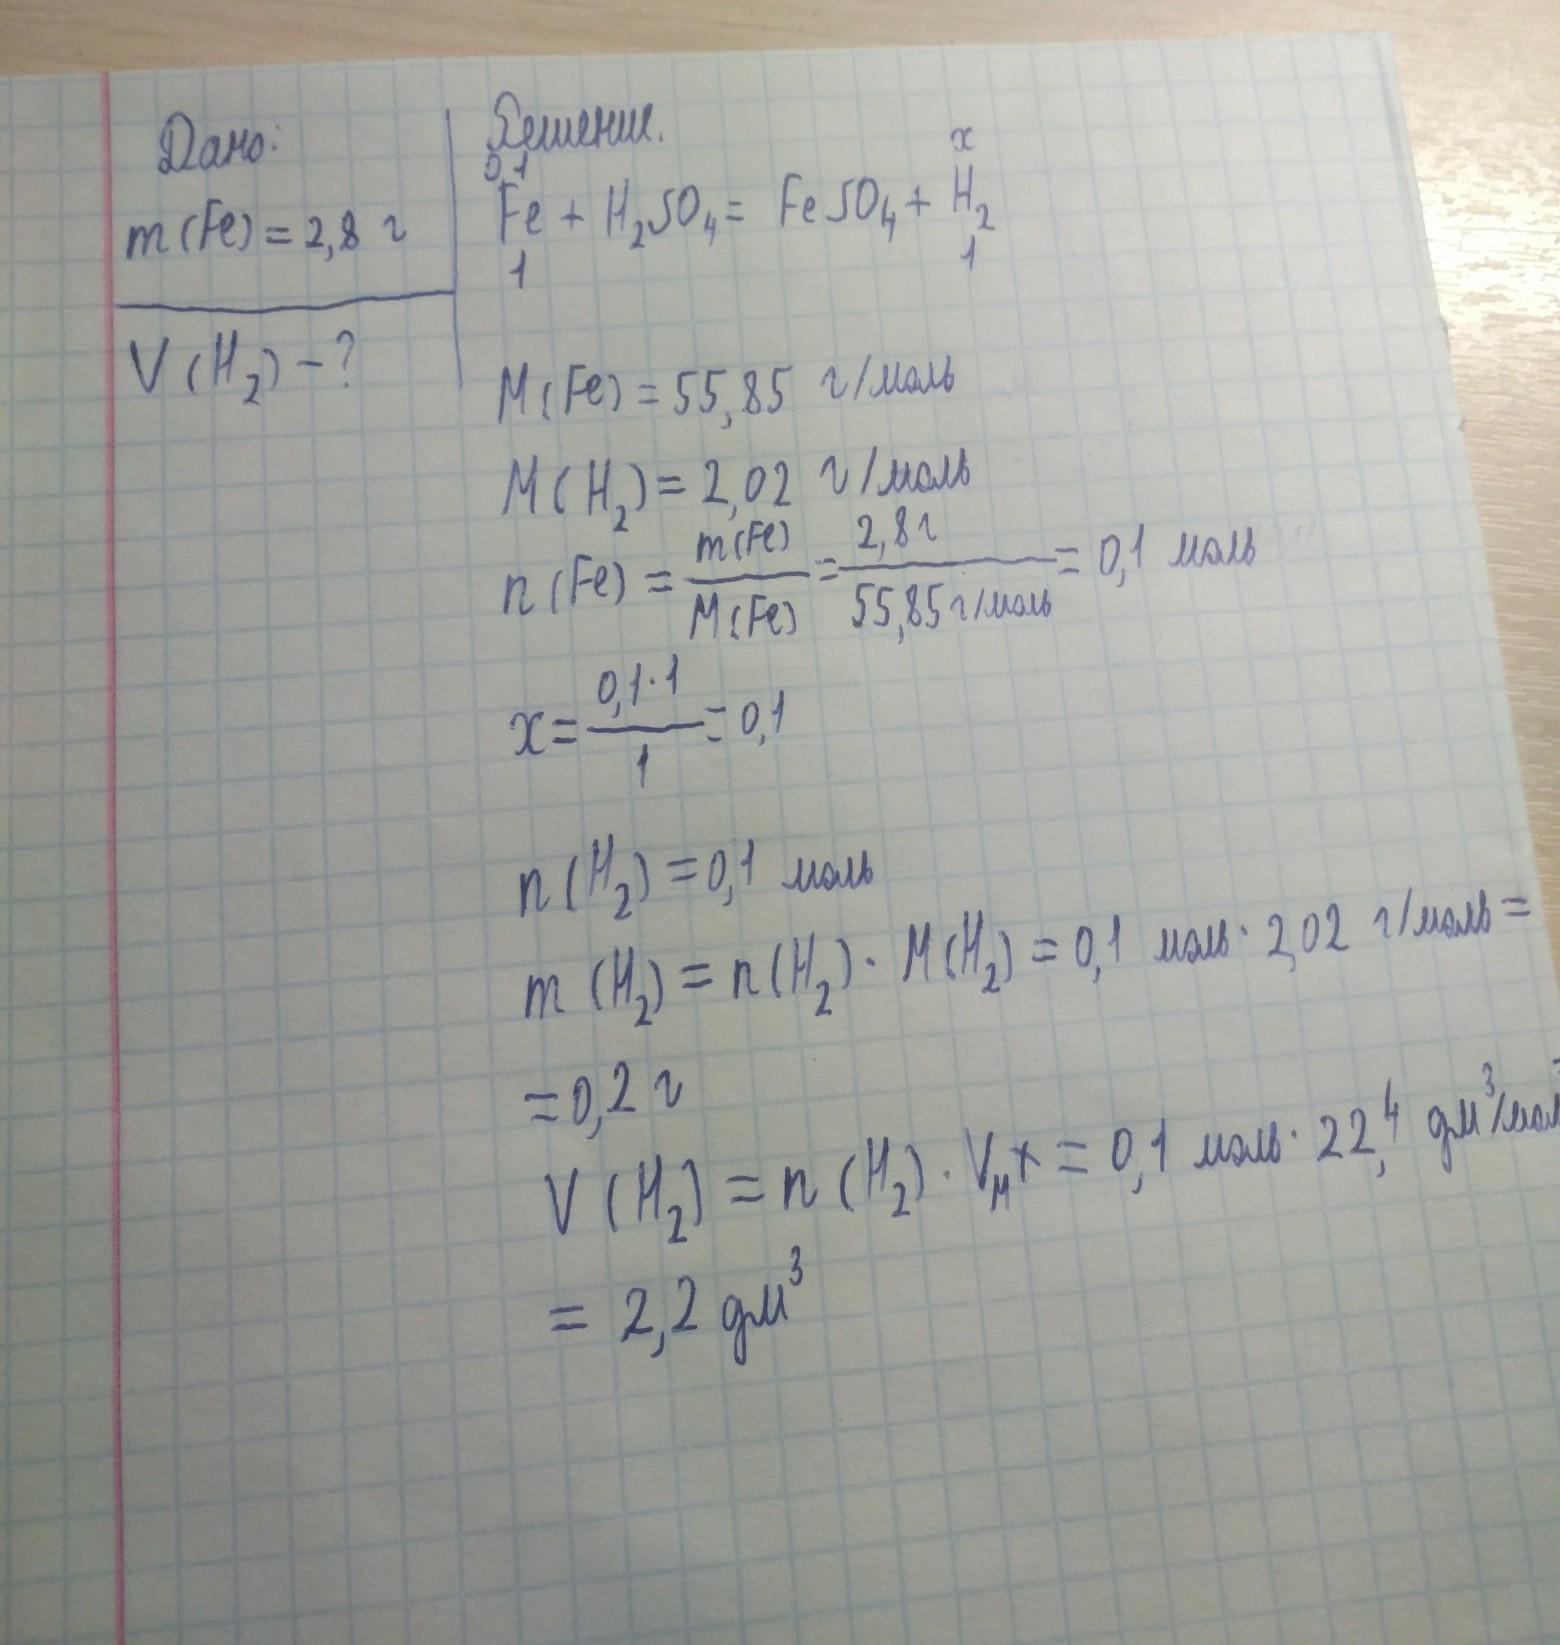 Дано:
m(Fe) = 2,8 г
V(H₂) - ?
Решение.
0,1 x
Fe + H₂SO₄ = FeSO₄ + H₂
1 1
M(Fe) = 55,85 г/моль
M(H₂) = 2,02 г/моль
n(Fe) = m(Fe)/M(Fe) = 2,8 г/55,85 г/моль = 0,1 моль
x = 0,1·1/1 = 0,1
n(H₂) = 0,1 моль
m(H₂) = n(H₂) · M(H₂) = 0,1 моль · 2,02 г/моль =
= 0,2 г
V(H₂) = n(H₂) · Vм x = 0,1 моль · 22,4 дм³/мол
= 2,2 дм³